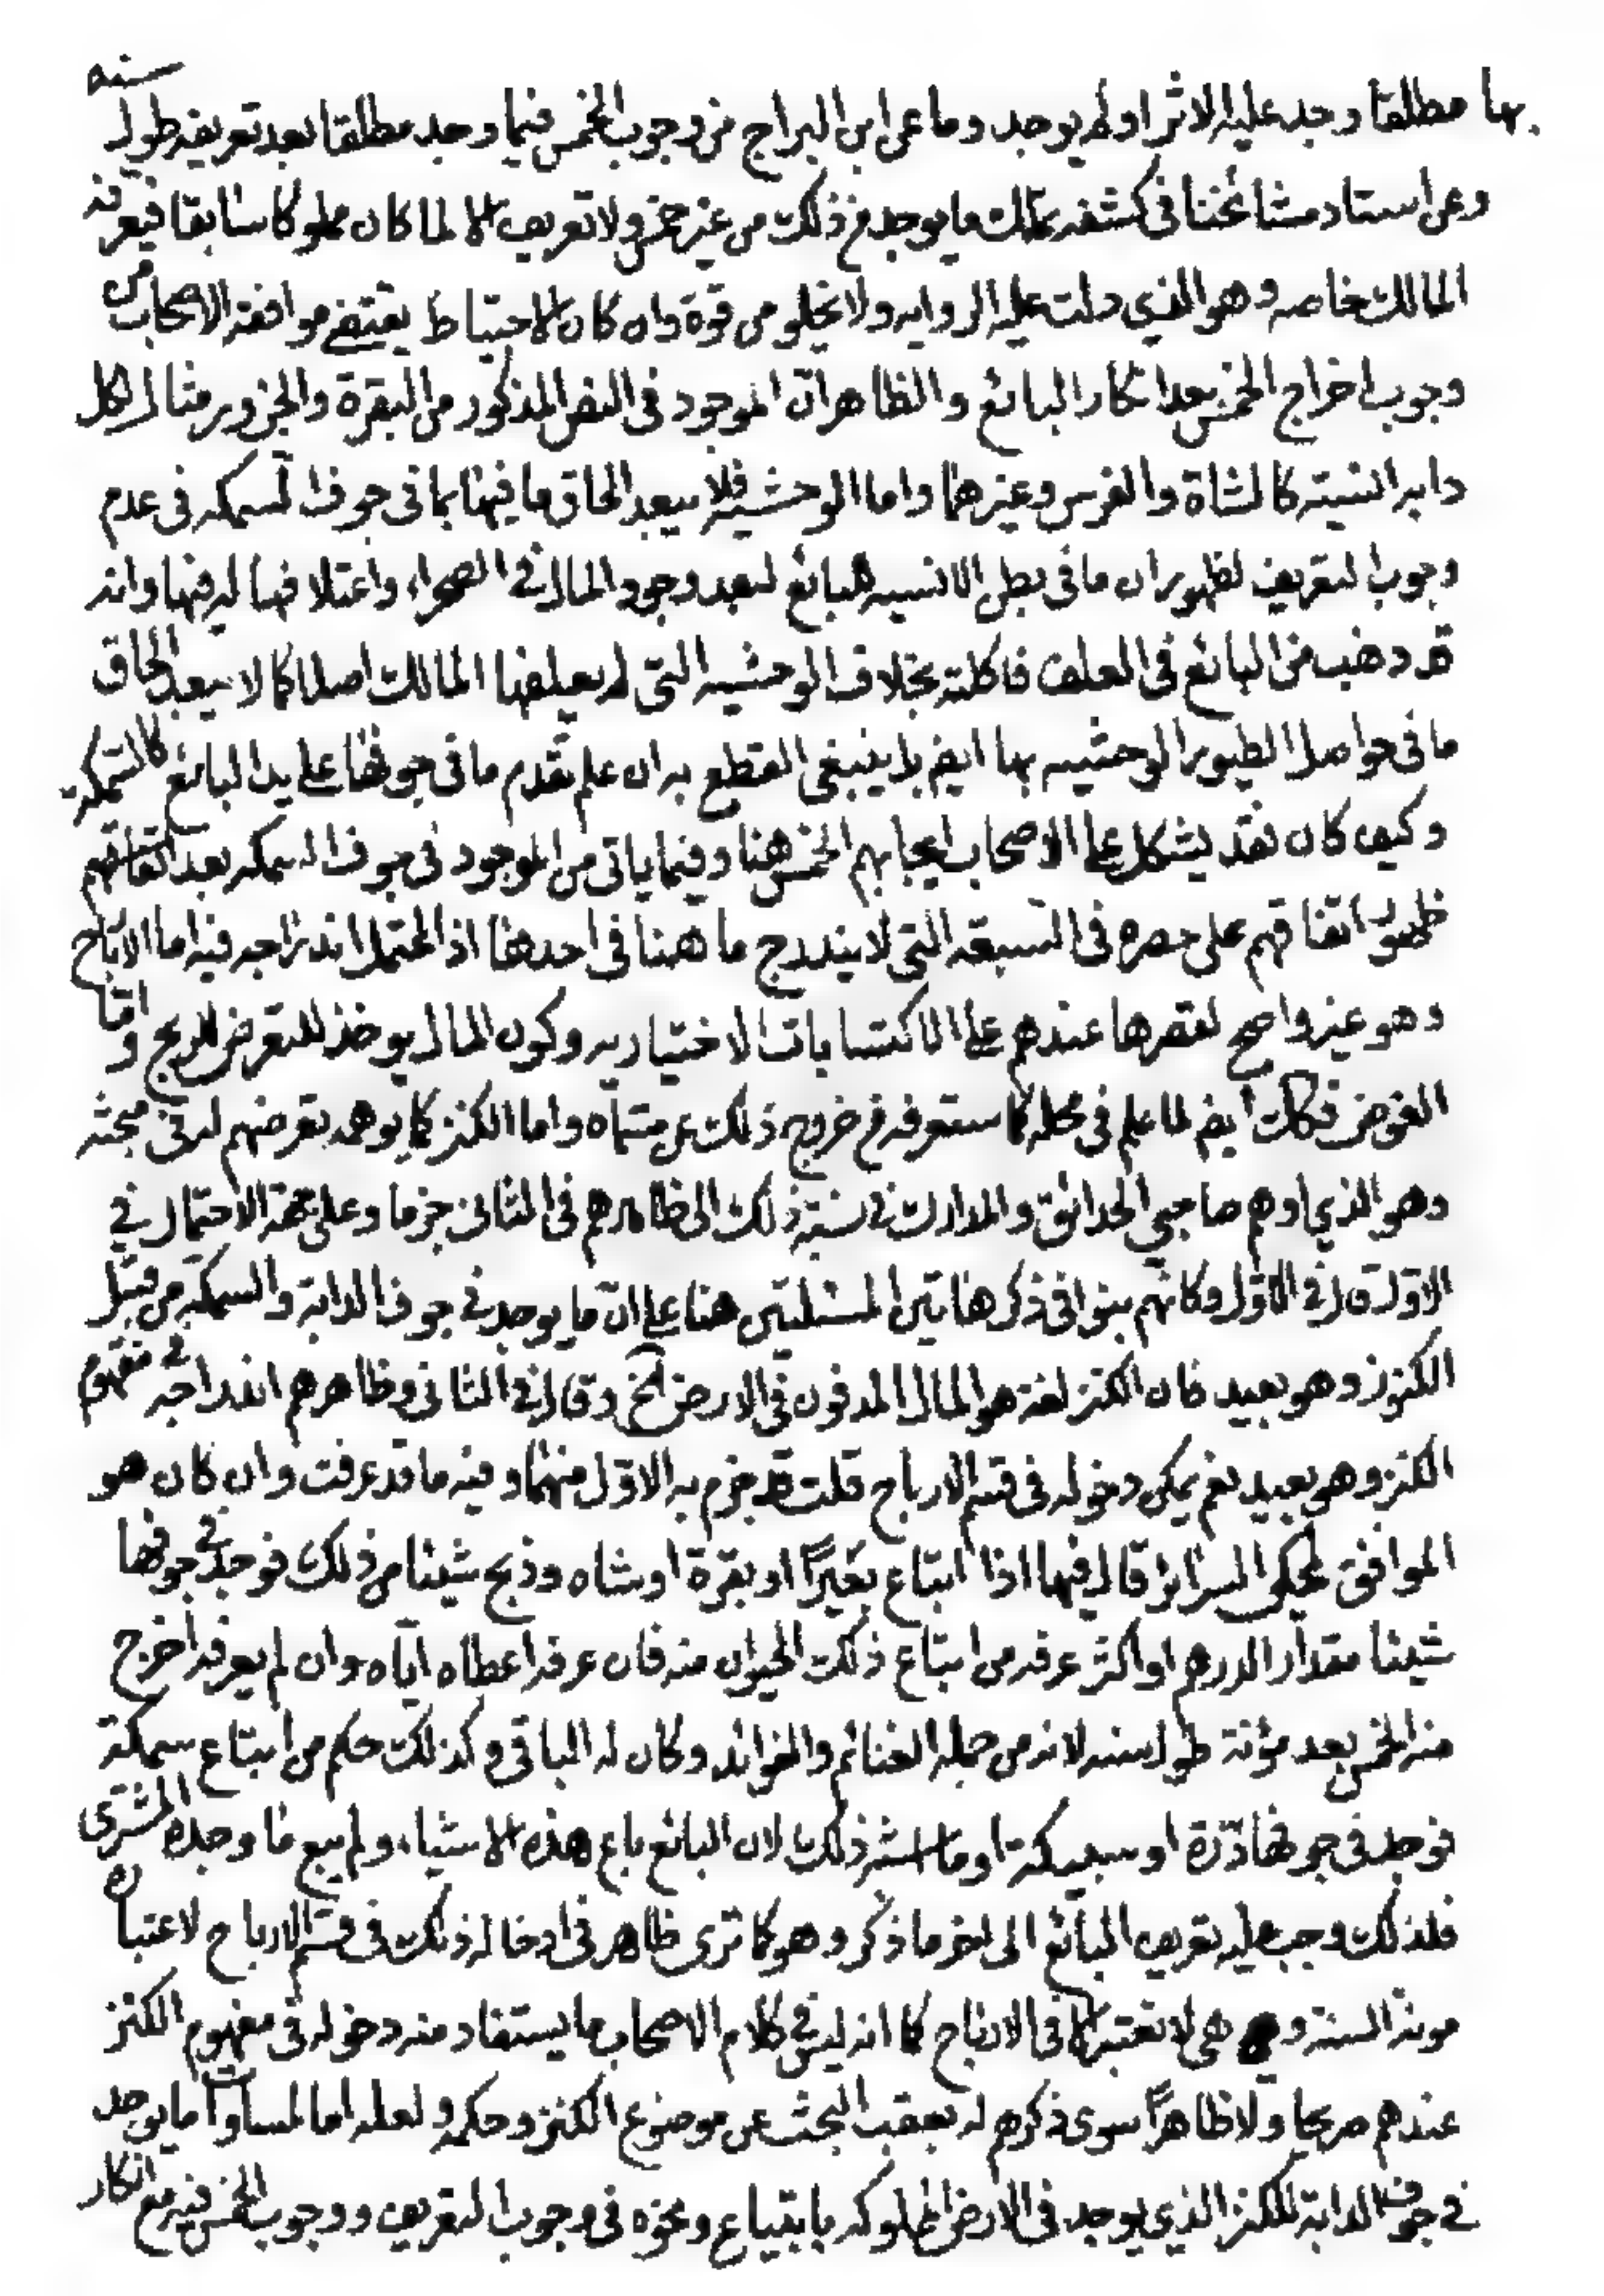 بها مطلقا وجد عليه الاثر اولم يوجد وما عن ابن البراج من وجوب الخمس فيما وجد مطلقا بعد تعريفه طول سنه
وعن استاد مشائخنا في كشفه تملك ما يوجد من ذلك من غير خمس ولا تعريف الا لما كان مملوكا سابقا فيعرفه
المالك خاصه وهو الذي دلت عليه الروايه ولا يخلو من قوة وان كان الاحتياط يقتضي موافقة الاصحاب من
وجوب اخراج الخمس بعد انكار البائع والظاهر ان الموجود في النص المذكور من البقرة والجزور مثال لكل
دابه انسيته كالشاة والفرس وغيرهما واما الوحشيه فلا يبعد الحاق ما فيها بما في جوف السمكه في عدم
وجوب التعريف لظهور ان ما في بطن الانسيه للبائع لبعد وجود المال في الصحراء واعتلافها له فيها وانه
قد ذهب من البائع في العلف فاكلته بخلاف الوحشيه التي لم يعلفها المالك اصلا كما لا يبعد الحاق
ما في حواصل الطيور الوحشيه بها ايض بل ينبغي القطع به ان علم تقدم ما في جوفها على يد البائع كالسمكه
وكيف كان فقد يشكل على الاصحاب ايجابهم الخمس هنا وفيما ياتي من الموجود في جوف السمكه بعد اتفاقهم
ظهور اتفاقهم على حصره في السبعة التي لا يندرج ما هنا في احدها اذ المحتمل اندراجه فيه اما الارباح
وهو غير واضح لقصرها عندهم على الاكتسابات الاختياريه وكون المال يوخذ للتعرض للربح واما
الغوص فكك ايض لما علم في محله كما ستعرفه من خروج ذلك عن مسماه واما الكنز كما يوهمه تعرضهم له في مبحثه
وهو الذي اوهم صاحبي الحدائق والمدارك في نسبة ذلك الى ظاهرهم في الثاني جزما وعلى جهة الاحتمال في
الاول قال في الاول وكانهم بنوا في ذكر هاتين المسئلتين هنا على ان ما يوجد في جوف الدابة والسمكة من قبيل
الكنوز وهو بعيد فان الكنز لغة هو المال المدفون في الارض الخ وقال في الثاني وظاهرهم اندراجه في مفهوم
الكنز وهو بعيد نعم يمكن دخوله في قسم الارباح قلت قد جزم به الاول منهما وفيه ما قد عرفت وان كان هو
الموافق لمحكي السرائر قال فيها اذا ابتاع بعيرًا او بقرة او شاه وذبح شيئا من ذلك فوجد في جوفها
شيئا مقدار الدرهم او اكثر عرفه من ابتاع ذلك الحيوان منه فان عرفه اعطاه اياه وان لم يعرفه اخرج
منه الخمس بعد مؤنة طول سنه لانه من جمله الغنائم والفوائد وكان له الباقي وكذلك حكم من ابتاع سمكة
فوجد في جوفها درة او سبيكة او ما اشبه ذلك لان البائع باع هذه الاشياء ولم يبع ما وجده المشتري
فلذلك وجب عليه تعريف البائع الى اخر ما ذكر وهو كما ترى ظاهر في ادخاله ذلك في قسم الارباح لاعتباره
مونة السنة و هي لا تعتبر الا في الارباح كما انه ليس في كلام الاصحاب ما يستفاد منه دخوله في مفهوم الكنز
عندهم صريحا ولا ظاهرًا سوى ذكرهم له بعقب البحث عن موضوع الكنز وحكمه ولعله اما لمساواة ما يوجد
في جوف الدابة للكنز الذي يوجد في الارض المملوكه بابتياع ونحوه في وجوب التعريف ووجوب الخمس فيه مع انكار